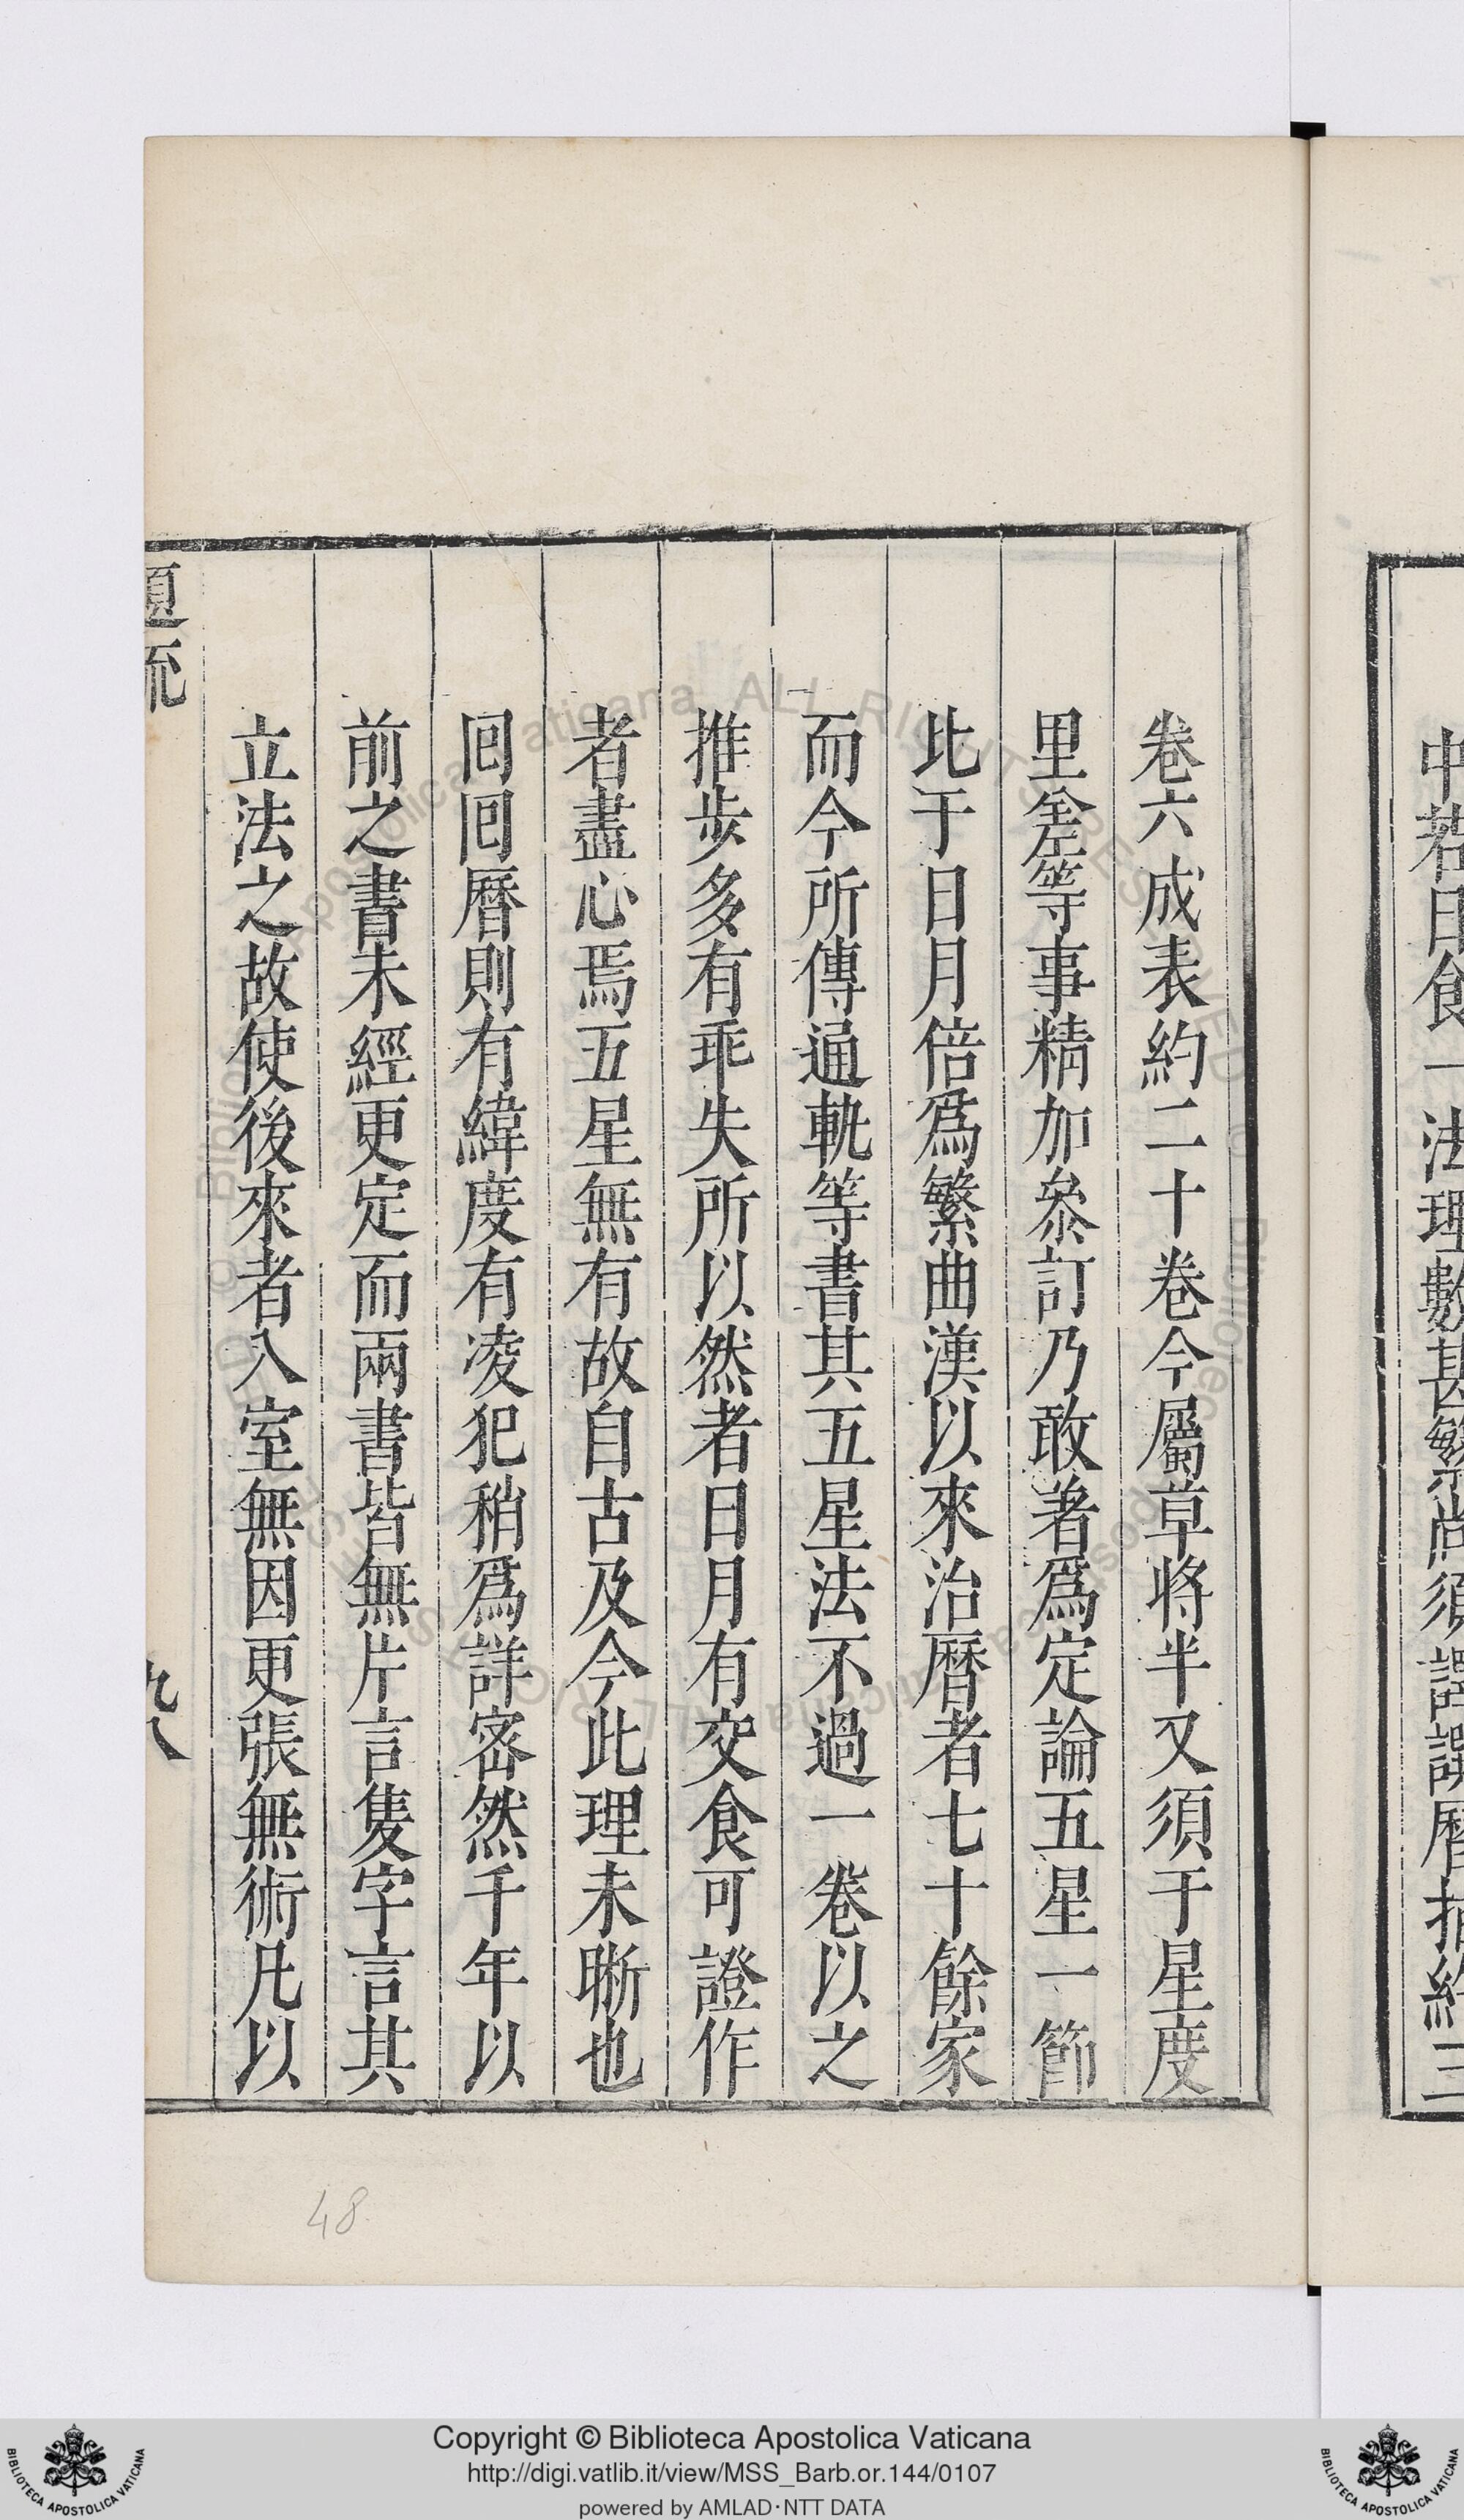 中若日食一法理數甚繁尚須譯譔曆指約三
卷六成表約二十卷今屬草將半又須于星度
里差等事精加叅訂乃敢著爲定論五星一節
比于日月倍爲繁曲漢以來治曆者七十餘家
而今所傳通軌等書其五星法不過一卷以之
推步多有乖失所以然者日月有交食可證作
者盡心焉五星無有故自古及今此理未晰也
囘囘曆則有緯度有凌犯稍爲詳密然千年以
前之書未經更定而兩書皆無片言隻字言其
立法之故使後來者入室無因更張無術凡以
48
Copyright © Biblioteca Apostolica Vaticana
http://digi.vatlib.it/view/MSS_Barb.or.144/0107
powered by AMLAD·NTT DATA
BIBLIOTECA APOSTOLICA VATICANA
BIBLIOTECA APOSTOLICA VATICANA